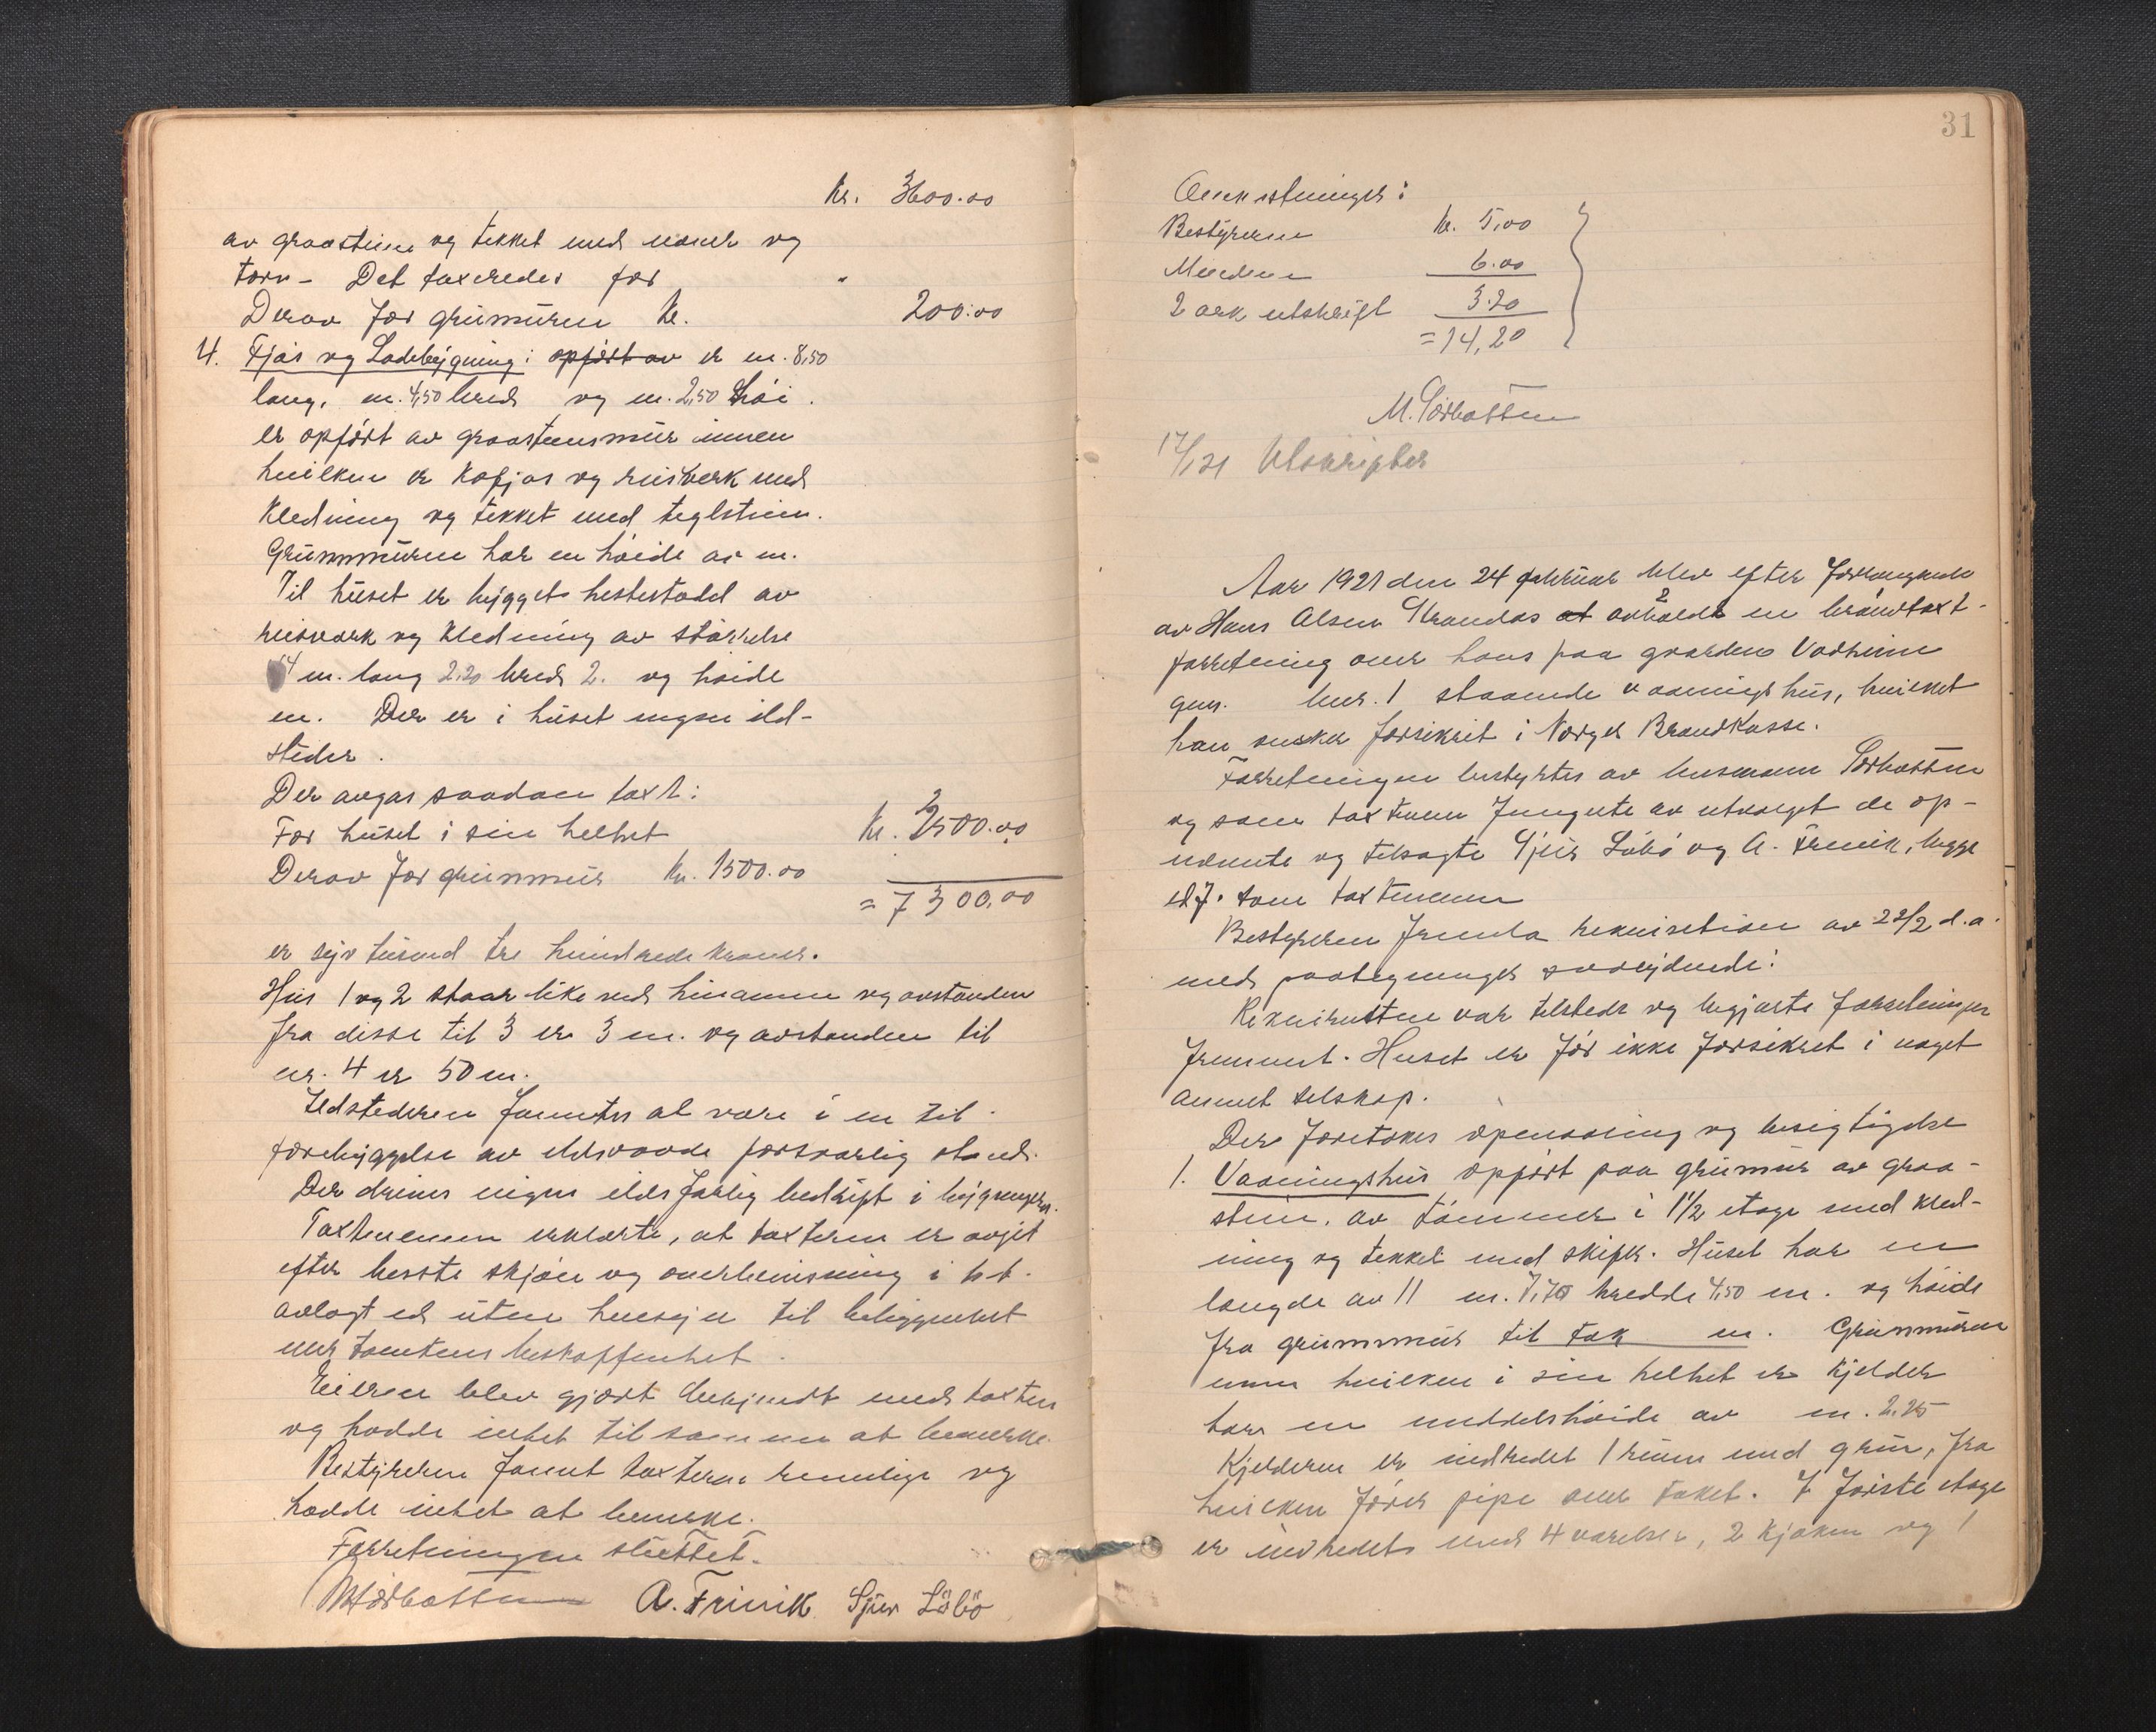 Kr. 3600.00
av graasteine og tekket med næver og
torv - Det taxeredes for "
Derav for grunmuren Kr. 200.00
4. Fjøs og Ladebygning: opført av er m. 8,50
lang, m. 4,50 bred og m. 2,50 høi.
er opført av graasteinsmur innen
hvilken er Kofjøs og reisverk med
Kledning og tekket med teglstein.
Grunnmuren har en høide av m.
Til huset er bygget hestestald av
reisverk og Kledning av størrelse
4 m. lang 2.20 bred 2. og høide
m. Der er i huset ingen ild-
steder.
Der avgas saadan taxt:
For huset i sin helhet Kr. 3500.00
Derav for grunmur Kr. 1500.00
= 7300,00
er syv tusend tre hundrede kroner.
Hus 1 og 2 staar like ved hinannen og avstanden
fra disse til 3 er 3 m. og avstanden til
nr. 4 er 50 m.
Ildstederen fanntes at være i en til
forebyggelse av ildsvaade forsvarlig stand.
Der drives ingen ildsfarlig bedrift i bygningen.
Taxtmennene erklærte, at taxterne er avgit
efter beste skjøn og overbevisning i h.t.
avlagt ed uten hensyn til beliggenhet
eller tomtens beskaffenhet.
Eieren blev gjort bekjendt med taxten
og hadde intet til samme at bemerke.
Bestyreren fannt taxterne rimelige og
hadde intet at bemerke.
Forretningen sluttet.
M Sørbotten A. Frivik Sjur Löbö
31
Omkostninger:
Bestyreren Kr. 5,00
Mændene 6.00
2 ark utskrift 3.20
= 14,20
M. Sørbotten
17/1 21 Utskrifter
Aar 1921 den 24 februar blev efter forlangende
av Hans Olsen Strandos at avholdt en brandtaxt-
forretning over hans paa gaarden Vadheim
gnr. bnr. 1 staaende vaaningshus, hvilket
han ønsker forsikret i Norges Brandkasse.
Forretningen bestyrtes av lensmann Sørbotten
og som taxtmenn fungerte av utvalget de op-
nævnte og tilsagte Sjur Löbö og A. Frivik, begge
ef. som taxtmenn
Bestyreren fremla rekvisition av 22/2 d.a.
med paategninger saalydende:
Rekvirenten var tilstede og begjærte forretningen
fremmet. Huset er før ikke forsikret i noget
annet selskap.
Der foretokes opmaaling og besigtigelse
1. Vaaningshus opført paa grunmur av graa-
stein, av tømmer i 1 1/2 etage med kled-
ning og tekket med skifer. Huset har en
længde av 11 m. 7,70 bredde 4,50 m. og høide
fra grunmur til tak m. Grunnmuren
innen hvilken i sin helhet er kjelder
har en middelshøide av m. 2.25
Kjelderen er indredet 1 rum med grue, fra
hvilken fører pipe over taket. I første etage
er indredet med 4 værelser, 2 kjøken og 1